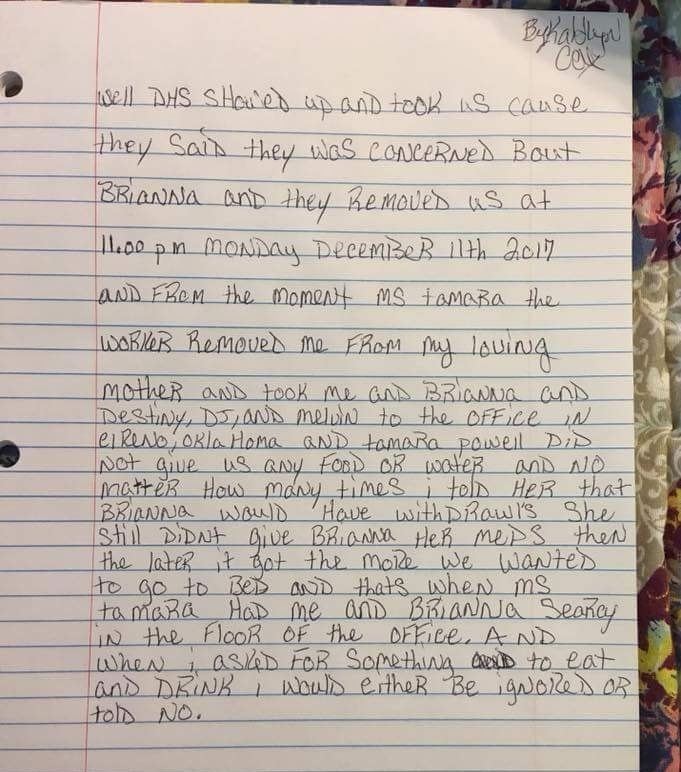 By Kaitlyn
Cox
well DHS SHowed up and took us cause
they said they was concerned Bout
Brianna and they Removed us at
11:00 pm Monday December 11th 2017
and From the moment ms tamara the
worker Removed me From my loving
mother and took me and Brianna and
Destiny, DJ, and melvin to the office in
el Reno, oklaHoma and tamara powell DiD
Not give us any Food or water and No
matter How many times i told Her that
Brianna would Have withDrawl's She
Still DiDnt give Brianna Her meDs then
the later it got the more we wanted
to go to Bed and thats when ms
tamara Had me and Brianna Searcy
in the Floor of the office. And
when i asked For Something to eat
and Drink i would either Be ignored or
told No.